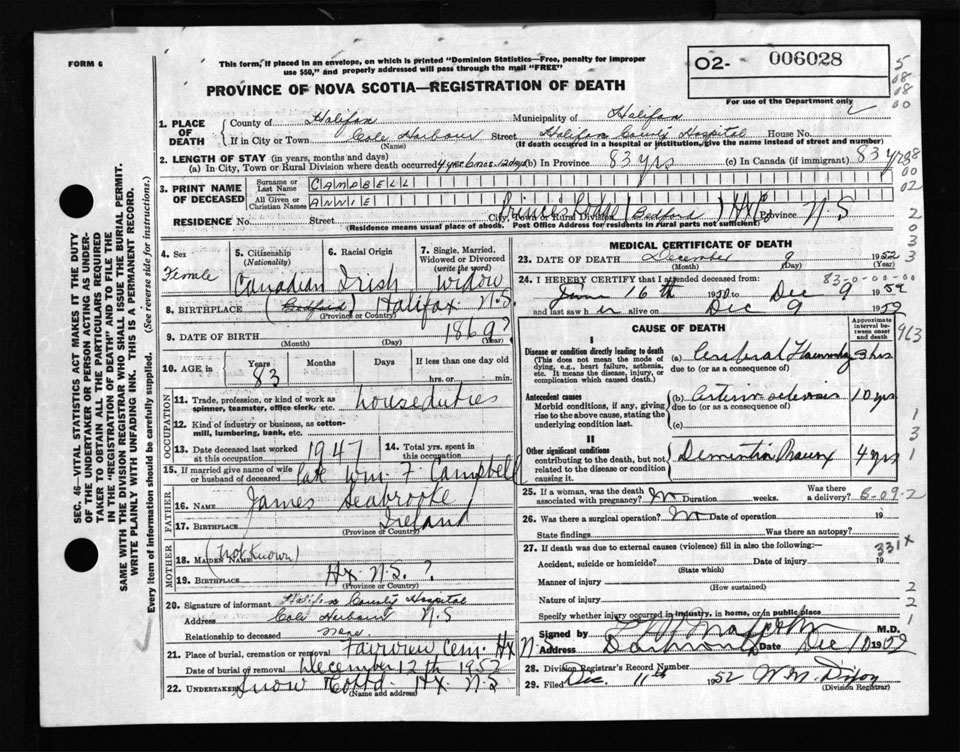 FORM 6
This form, if placed in an envelope, on which is printed "Dominion Statistics—Free, penalty for improper
use $50," and properly addressed will pass through the mail "FREE"
O2- 006028
For use of the Department only
PROVINCE OF NOVA SCOTIA—REGISTRATION OF DEATH
5
08
08
00
1. PLACE OF DEATH
County of Halifax Municipality of Halifax
If in City or Town Cole Harbour Street Halifax County Hospital House No.
(Name) (If death occurred in a hospital or institution, give its name instead of street and number)
2. LENGTH OF STAY (in years, months and days)
(a) In City, Town or Rural Division where death occurred 4 yrs 6 mos. 12 days (b) In Province 83 yrs (c) In Canada (if immigrant) 83 yrs
3. PRINT NAME OF DECEASED
Surname or Last Name CAMPBELL
All Given or Christian Names ANNIE
RESIDENCE No. Street City, Town or Rural Division (Bedford) Hx Co Province N.S
(Residence means usual place of abode. Post Office Address for residents in rural parts not sufficient)
4. Sex Female
5. Citizenship (Nationality) Canadian
6. Racial Origin Irish
7. Single, Married, Widowed or Divorced (write the word) Widow
8. BIRTHPLACE (Bedford) Halifax N.S.
(Province or Country)
9. DATE OF BIRTH 1869?
(Month) (Day) (Year)
10. AGE Years 83 Months Days If less than one day old
hrs. or min.
OCCUPATION
11. Trade, profession, or kind of work as spinner, teamster, office clerk, etc. houseduties
12. Kind of industry or business, as cotton-mill, lumbering, bank, etc.
13. Date deceased last worked at this occupation 1947
14. Total yrs. spent in this occupation
15. If married give name of wife or husband of deceased late Wm. F Campbell
FATHER
16. Name James Seabrooke
17. Birthplace Ireland
(Province or Country)
MOTHER
18. Maiden Name (Not Known)
19. Birthplace Hx. N.S. ?
(Province or Country)
20. Signature of informant Halifax County Hospital
Address Cole Harbour N.S
Relationship to deceased none.
21. Place of burial, cremation or removal Fairview Cem. Hx
Date of burial or removal December 12th 1952
22. Undertaker Snow Co Ltd. Hx. N.S
(Name and address)
MEDICAL CERTIFICATE OF DEATH
23. DATE OF DEATH December 9 1952
(Month) (Day) (Year)
24. I HEREBY CERTIFY that I attended deceased from: 83-0-00-00
June 16th 19 to Dec 9 1952
and last saw her alive on Dec 9 1952
CAUSE OF DEATH
Approximate interval between onset and death
I
Disease or condition directly leading to death
(This does not mean the mode of dying, e.g., heart failure, asthenia, etc. It means the disease, injury, or complication which caused death.)
(a) Cerebral Haemorrhage 3 hrs
due to (or as a consequence of)
Antecedent causes
Morbid conditions, if any, giving rise to the above cause, stating the underlying condition last.
(b) Arteriosclerosis 10 yrs
due to (or as a consequence of)
(c)
II
Other significant conditions
contributing to the death, but not related to the disease or condition causing it.
Dementia Praecox 4 yrs
25. If a woman, was the death associated with pregnancy? No Duration weeks. Was there a delivery? B-09-2
26. Was there a surgical operation? No Date of operation 19
State findings Was there an autopsy?
27. If death was due to external causes (violence) fill in also the following:—
331X
Accident, suicide or homicide? Date of injury 19
(State which)
Manner of injury
(How sustained)
Nature of injury
Specify whether injury occurred in industry, in home, or in public place
Signed by M.D.
Address Dartmouth Date Dec 10 1952
28. Division Registrar's Record Number
29. Filed Dec. 11th 1952 W. M. Dixon
(Division Registrar)
SEC. 46—VITAL STATISTICS ACT MAKES IT THE DUTY
OF THE UNDERTAKER OR PERSON ACTING AS UNDER-
TAKER TO OBTAIN ALL THE PARTICULARS REQUIRED
IN THE "REGISTRATION OF DEATH" AND TO FILE THE
SAME WITH THE DIVISION REGISTRAR WHO SHALL ISSUE THE BURIAL PERMIT.
WRITE PLAINLY WITH UNFADING INK. THIS IS A PERMANENT RECORD.
Every item of information should be carefully supplied. (See reverse side for instructions.)